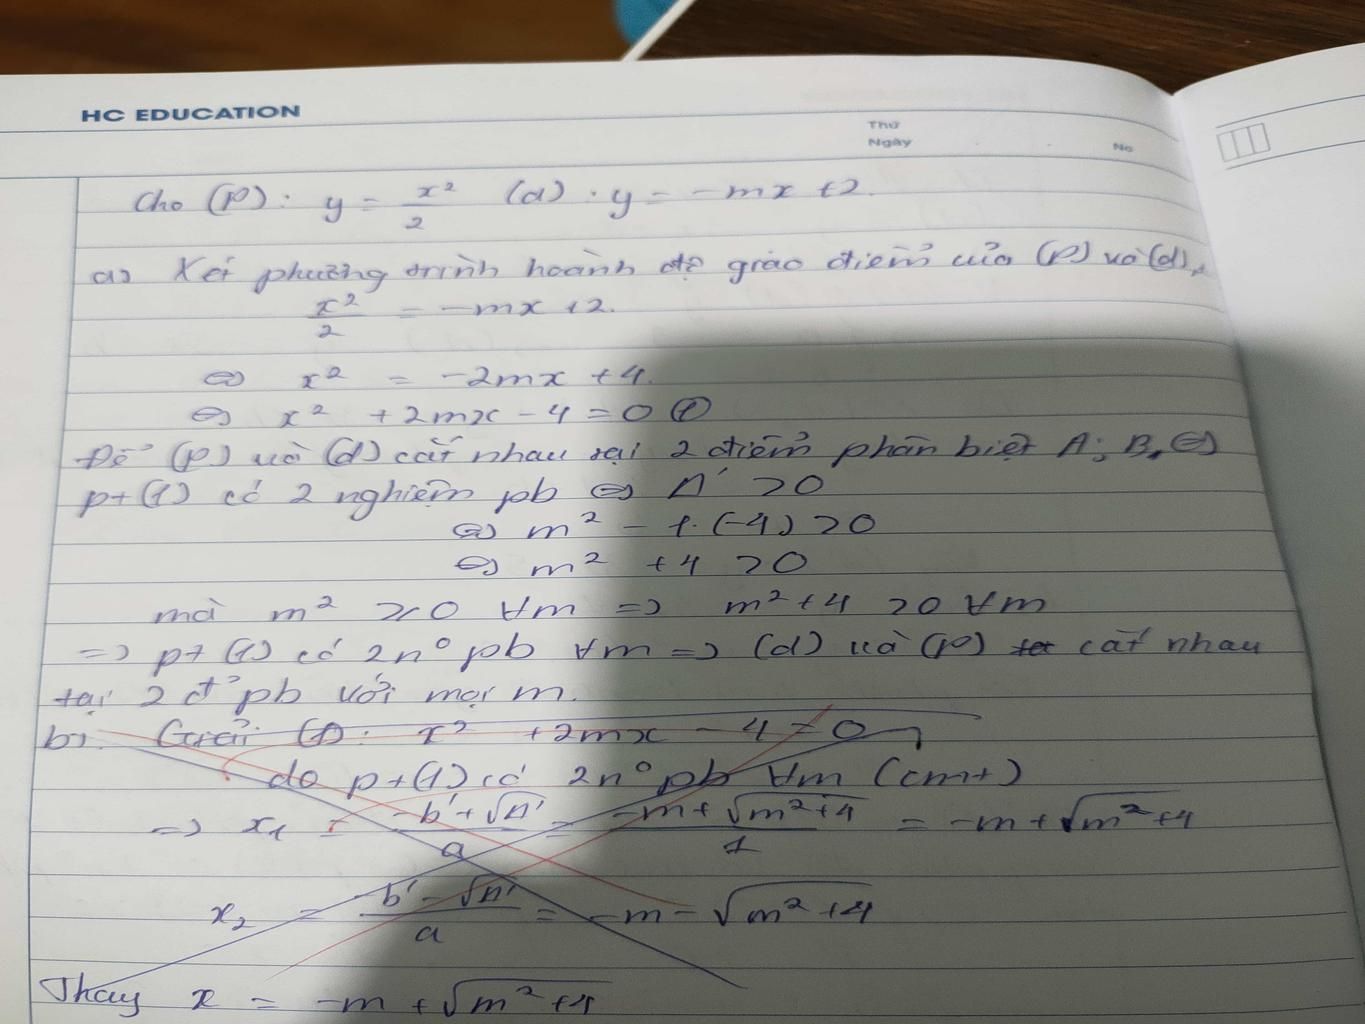 HC EDUCATION
Thứ
Ngày
No
Cho (P): y = x²/2 (d): y = -mx +2.
a) Xét phương trình hoành độ giao điểm của (P) và (d),
x²/2 = -mx +2.
⇔ x² = -2mx +4.
⇔ x² +2mx - 4 = 0 (1)
Để (P) và (d) cắt nhau tại 2 điểm phân biệt A; B, ⇔
pt (1) có 2 nghiệm pb ⇔ Δ' >0
⇔ m² - 1.(-4) >0
⇔ m² +4 >0
mà m² ≥0 ∀m => m²+4 >0 ∀m
=> pt (1) có 2n° pb ∀m => (d) và (P) cắt nhau
tại 2 đ' pb với mọi m.
b). Giải (1): x² +2mx - 4 = 0
do pt (1) có 2n° pb ∀m (cmt)
=> x₁ = (-b' + √Δ')/a = (-m + √(m²+4))/1 = -m + √(m²+4)
x₂ = (-b' - √Δ')/a = -m - √(m²+4)
Thay x = -m + √(m²+4)